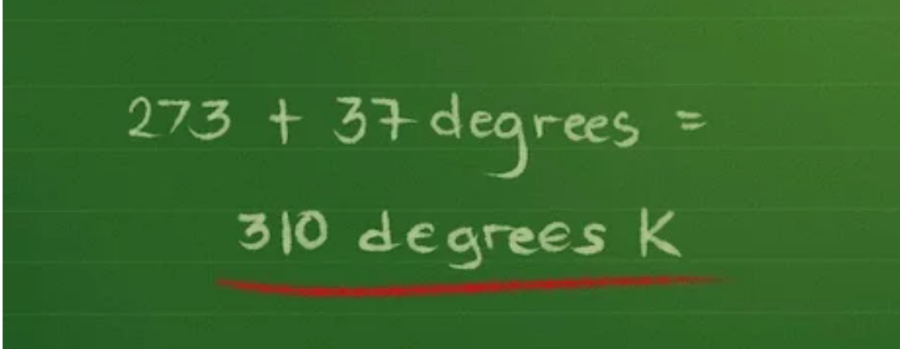 273 + 37 degrees =
310 degrees K